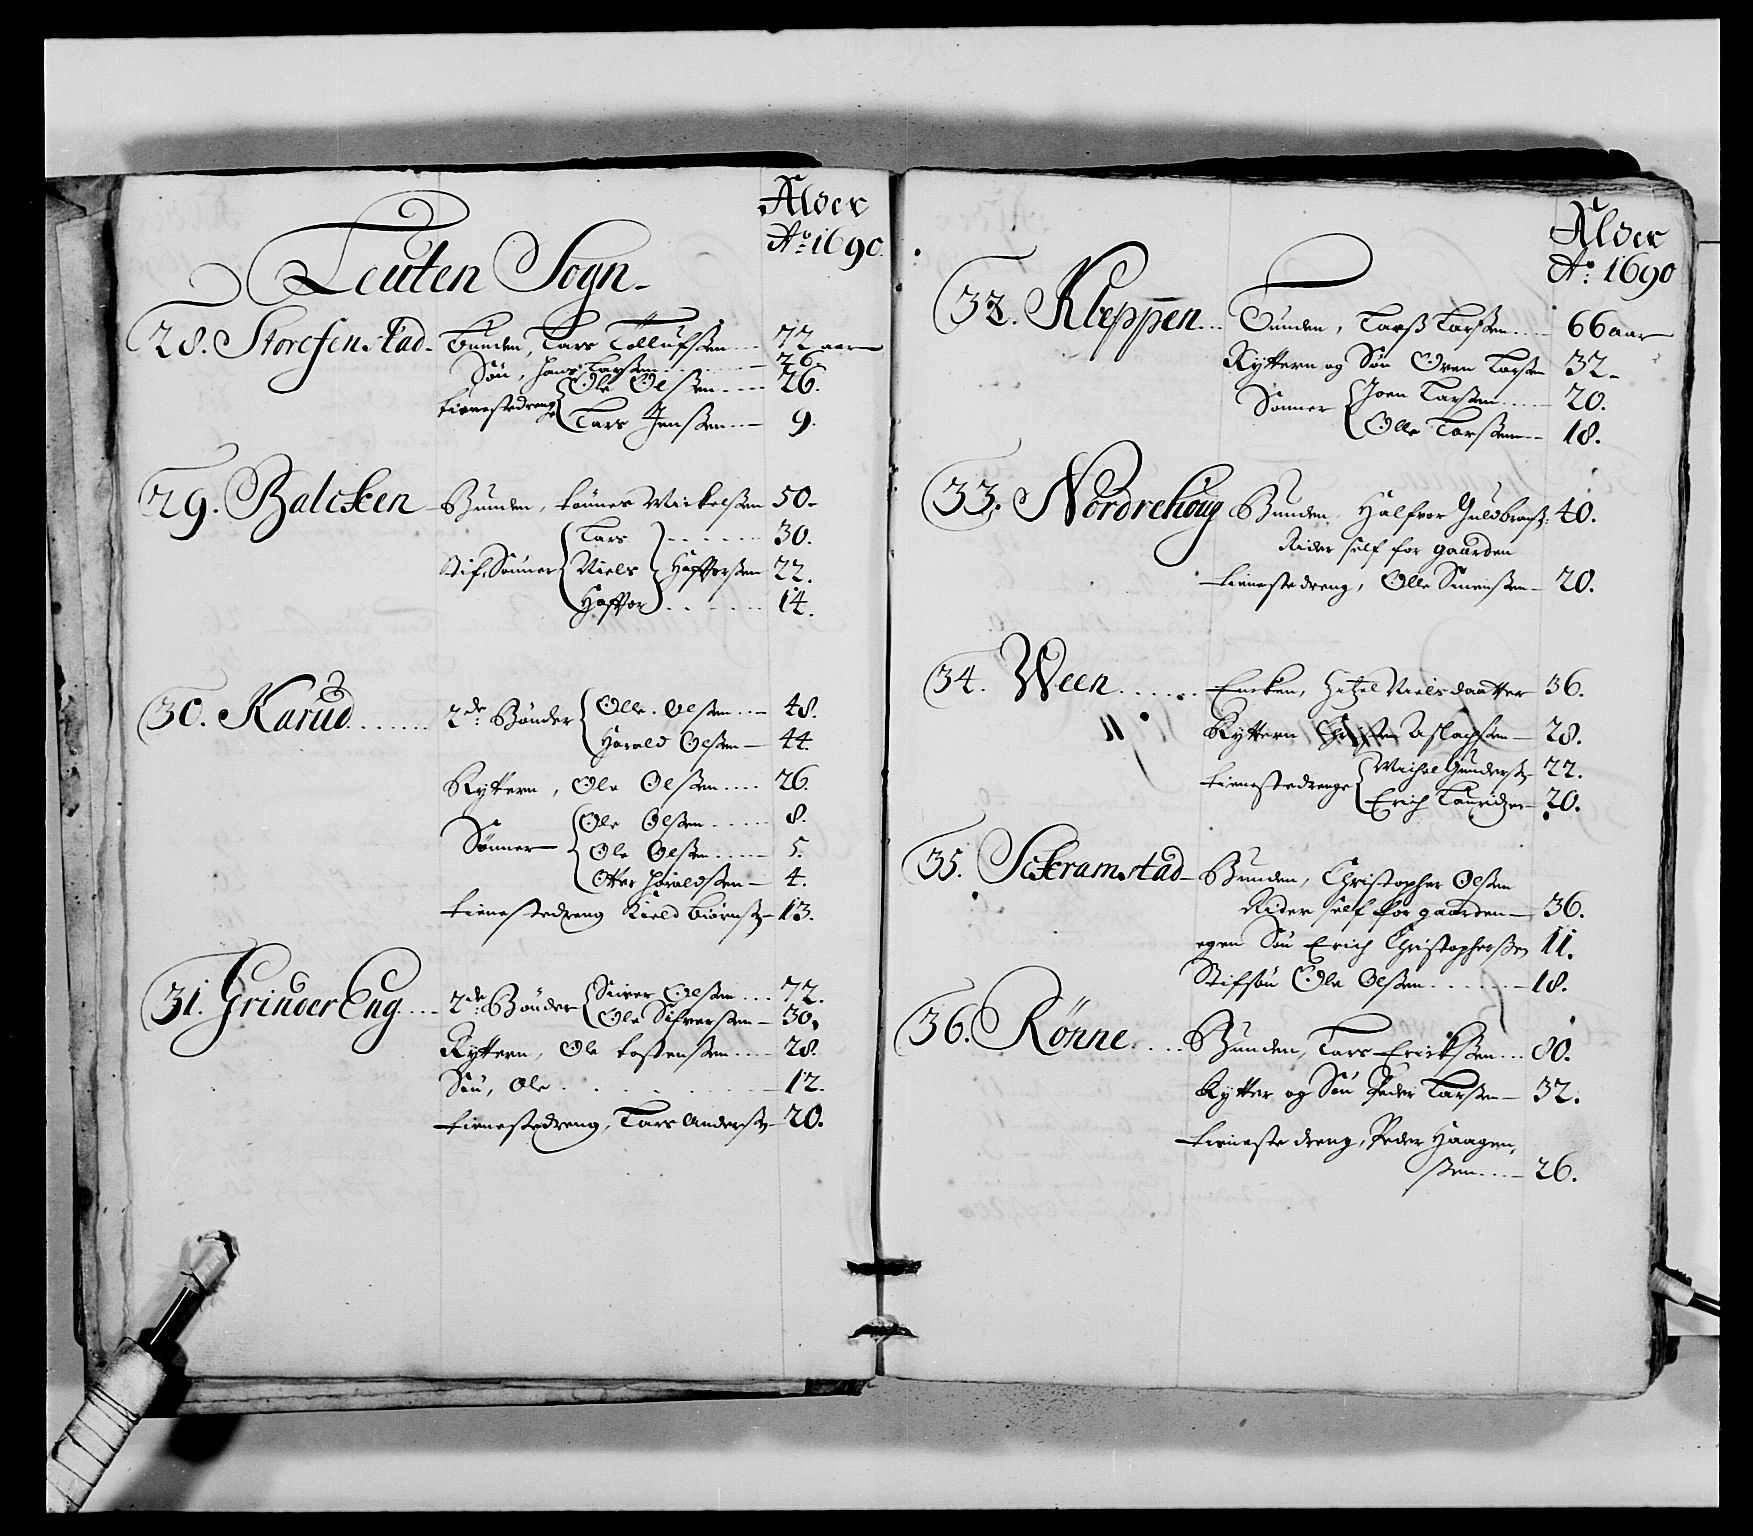 Alder
Aº: 1690.
Leuten Sogn.
28. Storefenstad. Bunden, Lars Tollufsen 72 aar
Søn, Hans Larsen 26.
tienestedrenge Ole Olsen 26.
Lars Jensen 9.
29. Balcken Bunden, Mickelsen 50.
Lars 30.
Stif Sønner Niels Haffvorsen 22.
Haffvor 14.
30. Karud 2de Bønder Olle Olsen 48.
Harald Olsen 44.
Rytteren, Ole Olsen 26.
Ole Olsen 8.
Sønner Ole Olsen 5.
Otter Haraldsen 4.
tienestedreng Kield Biørns: 13.
31. Grinder Eng 2de Bønder Siver Olsen 72.
Ole Sifversen 30.
Rytteren, Ole Tostensen 28.
Søn, Ole 12.
tienestedreng, Lars Anders: 20.
Alder
Aº: 1690
32. Kleppen Bunden, Larss Larsen 66 aar
Rytteren og Søn Even Larsen 32.
Sønner Joen Larsen 20.
Olle Larsen 18.
33. Nordrehoug Bunden, Halfvor Guldbrands: 40.
Rider self for gaarden
tienestedreng, Olle Simensen 20.
34. Ween Encken, Nielsdaatter 36.
Rytteren Christen Aslachsen 28.
tienestedrenge Michel Gunders: 22.
Erich Lauridzen 20.
35. Sckramstad Bunden, Christopher Olsen
Rider self for gaarden 36.
egen Søn Erich Christophersen 11.
Stifsøn Ole Olsen 18.
36. Rønne Bunden, Lars Ericksen 80.
Rytter og Søn Peder Larsen 32.
tieneste dreng, Peder Haagen,
sen 26.